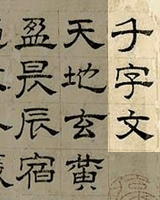 千字文
天地玄黃
盈昃辰宿